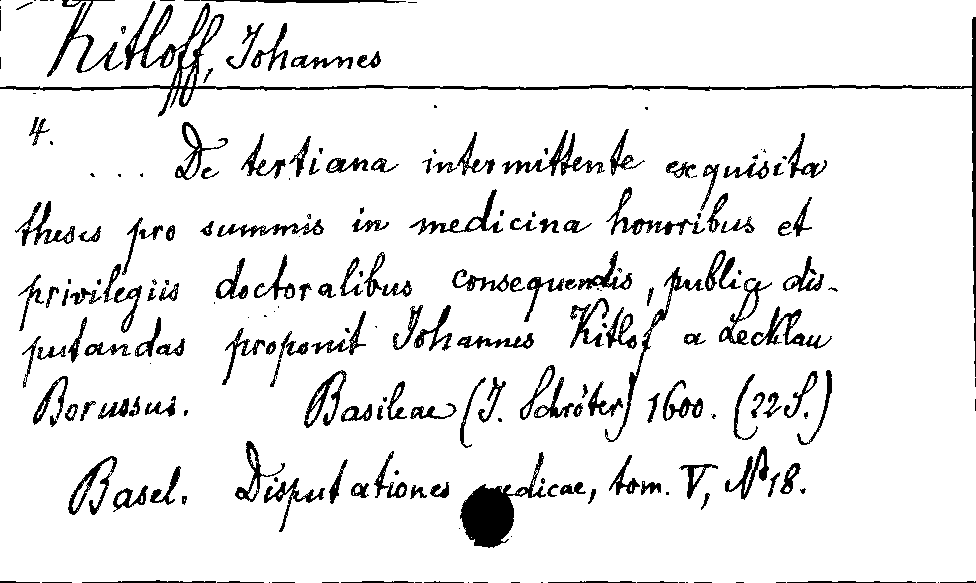 Kitloff, Johannes
4.
... De tertiana intermittente exquisita
theses pro summis in medicina honoribus et
privilegiis doctoralibus consequendis, publice dis-
putandas proponit Johannes Kitlof a Lecklau
Borussus. Basileae (J. Schröter) 1600. (22 S.)
Basel. Disputationes medicae, tom. V, No 18.